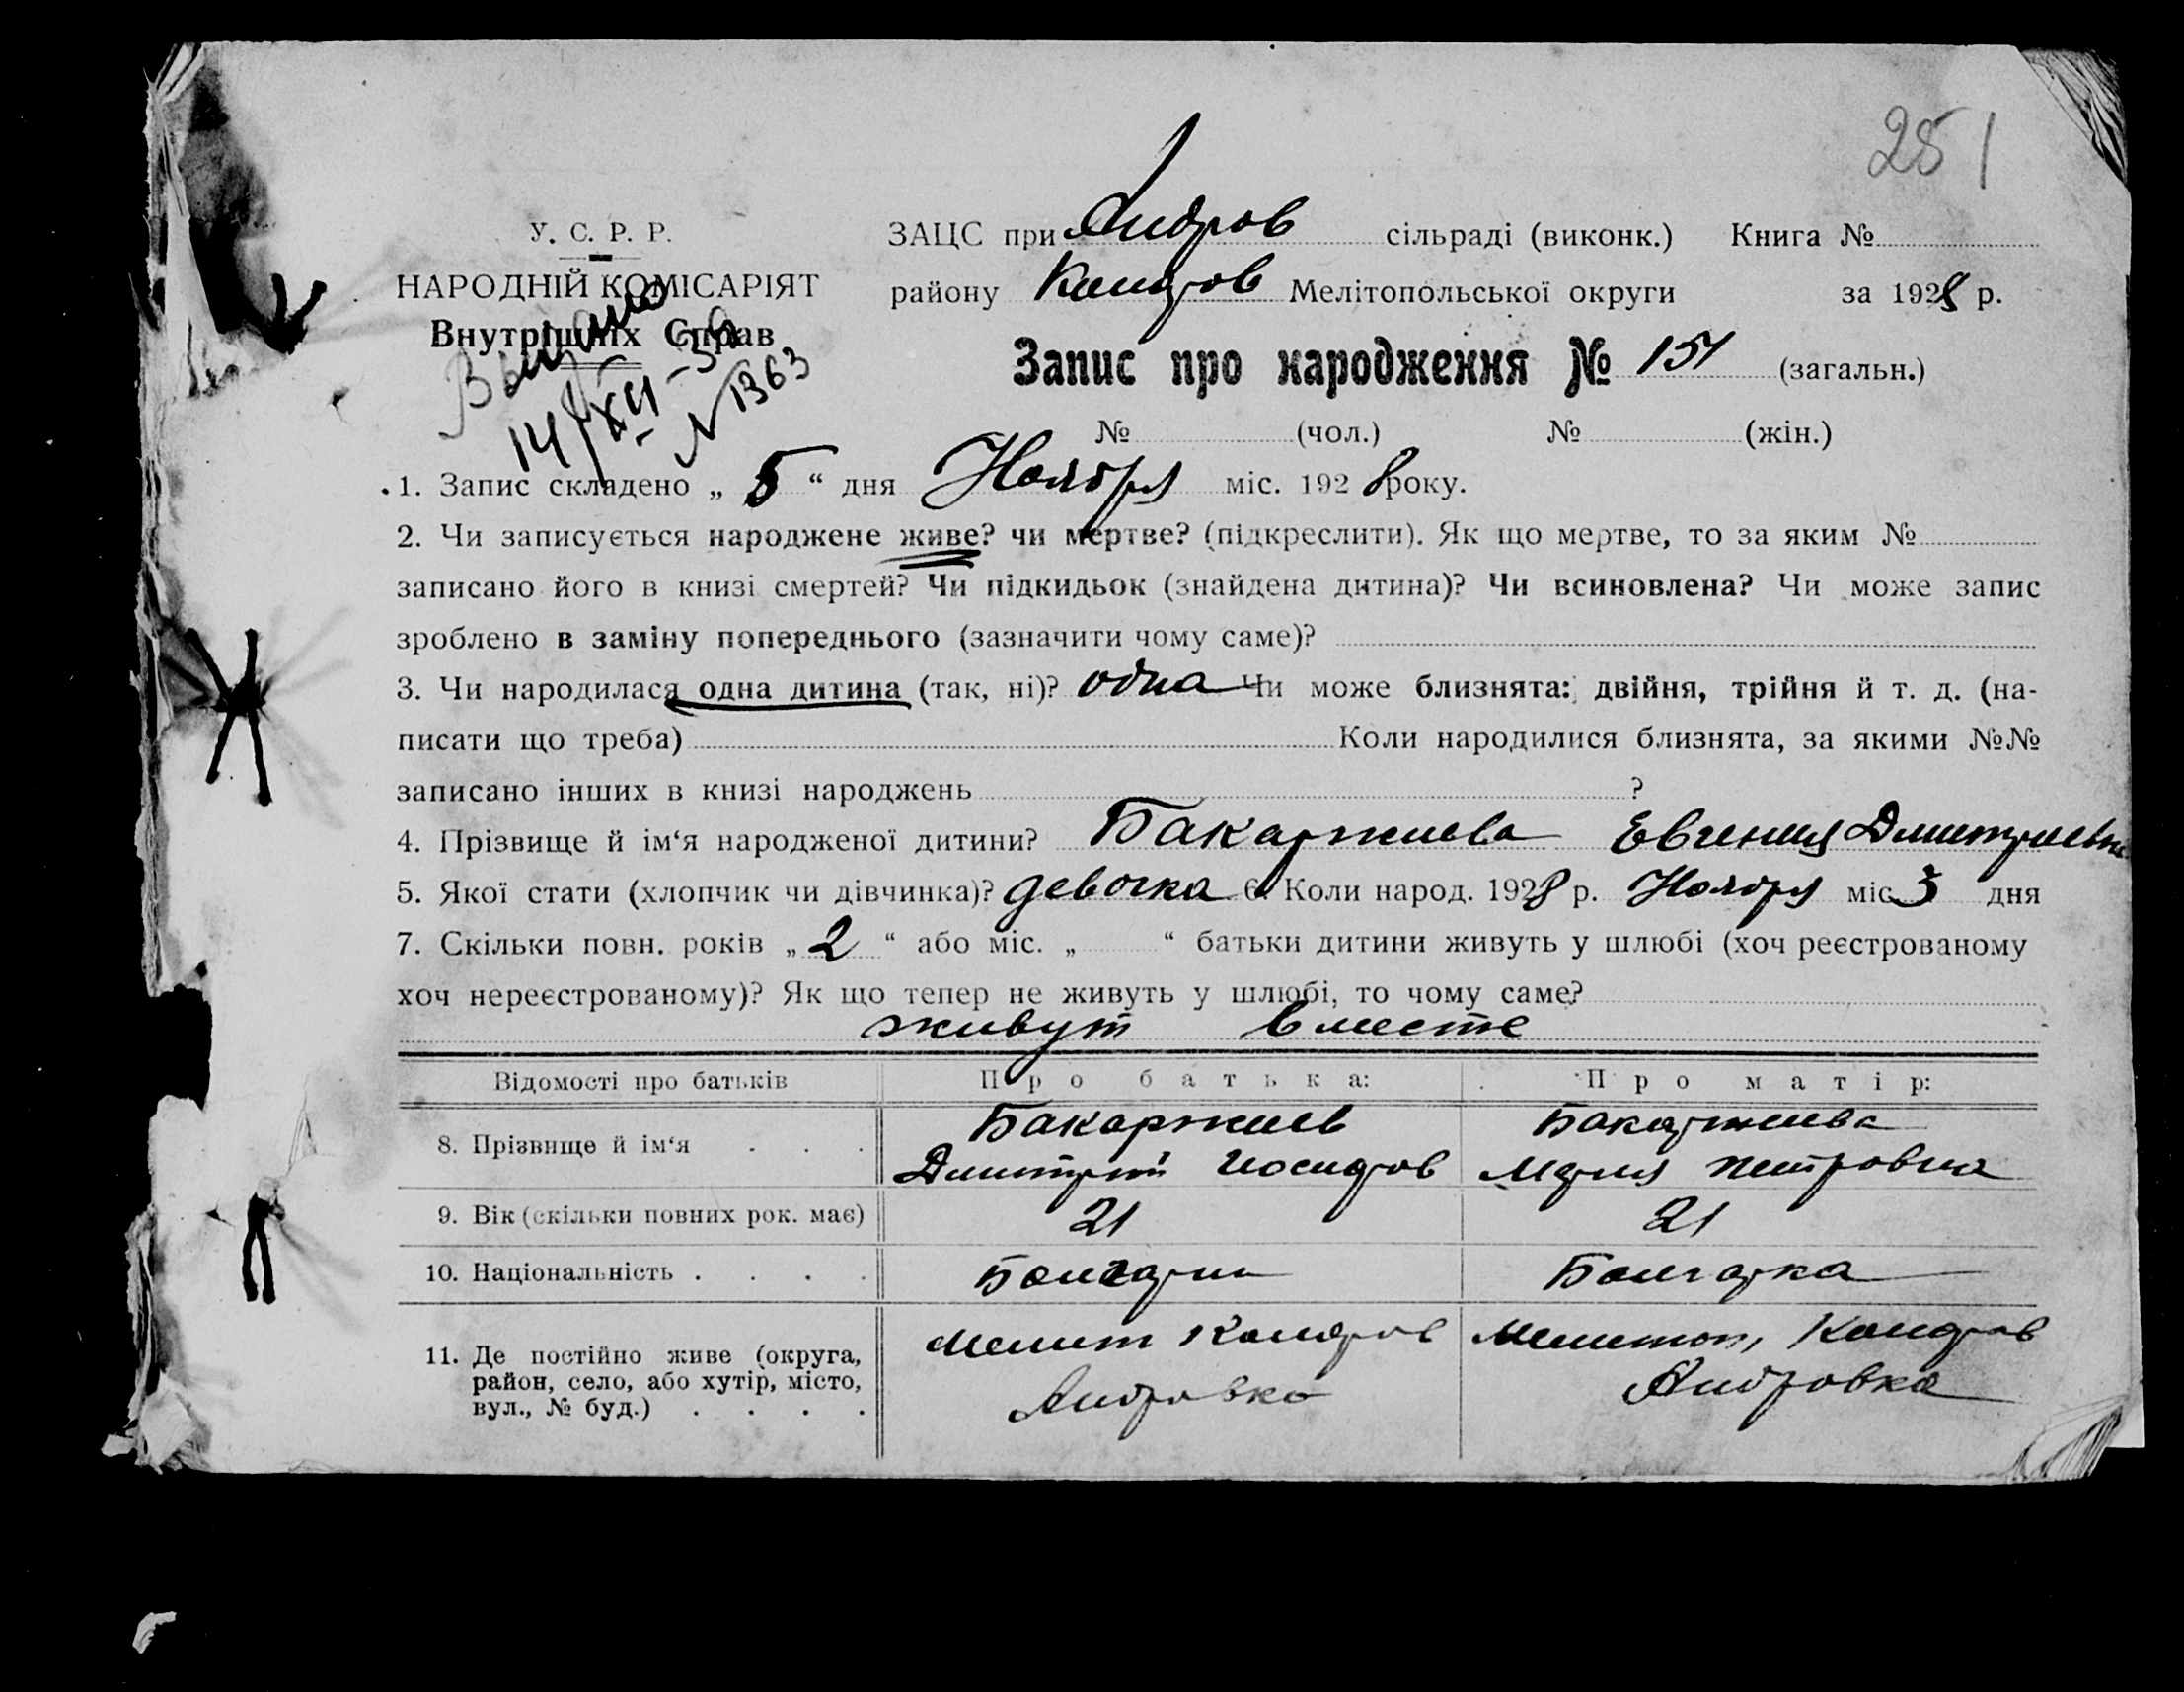 251
У. С. Р. Р.
НАРОДНІЙ КОМІСАРІЯТ
Внутрішніх Справ
ЗАЦС при Андров сільраді (виконк.) Книга №
району Коларов Мелітопольської округи за 1928 р.
Запис про народження № 154 (загальн.)
№ (чол.) № (жін.)
Выдано
14/XII-39
№ 1363
1. Запис складено „ 5 “ дня Ноября міс. 1928 року.
2. Чи записується народжене живе? чи мертве? (підкреслити). Як що мертве, то за яким №
записано його в книзі смертей? Чи підкидьок (знайдена дитина)? Чи всиновлена? Чи може запис
зроблено в заміну попереднього (зазначити чому саме)?
3. Чи народилася одна дитина (так, ні)? одна Чи може близнята: двійня, трійня й т. д. (на-
писати що треба) Коли народилися близнята, за якими №№
записано інших в книзі народжень ?
4. Прізвище й ім‘я народженої дитини? Бакаржиева Евгения Дмитриевна
5. Якої стати (хлопчик чи дівчинка)? девочка 6. Коли народ. 1928 р. Ноября міс 3 дня
7. Скільки повн. років „ 2 “ або міс. „ “ батьки дитини живуть у шлюбі (хоч реєстрованому
хоч нереєстрованому)? Як що тепер не живуть у шлюбі, то чому саме?
живут вместе
Відомості про батьків Про батька: Про матір:
8. Прізвище й ім‘я Бакаржиев Бакаржиева
Дмитрий Иосифов Мария Петровна
9. Вік (скільки повних рок. має) 21 21
10. Національність Болгарин Болгарка
11. Де постійно живе (округа, Мелит Коларов Мелитоп, Коларов
район, село, або хутір, місто, Андровка Андровка
вул., № буд.)